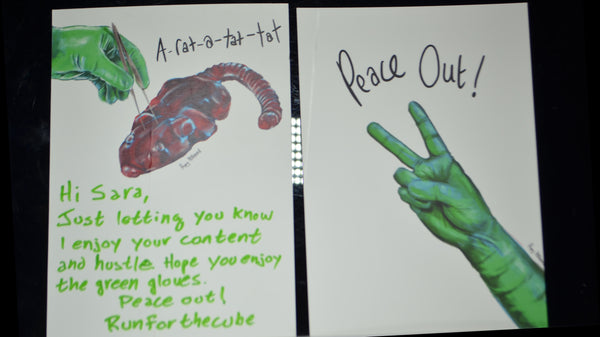 A-rat-a-tat-tat
Hi Sara,
Just letting you know
I enjoy your content
and hustle. Hope you enjoy
the green gloves.
Peace out!
Runforthecube
Peace Out!